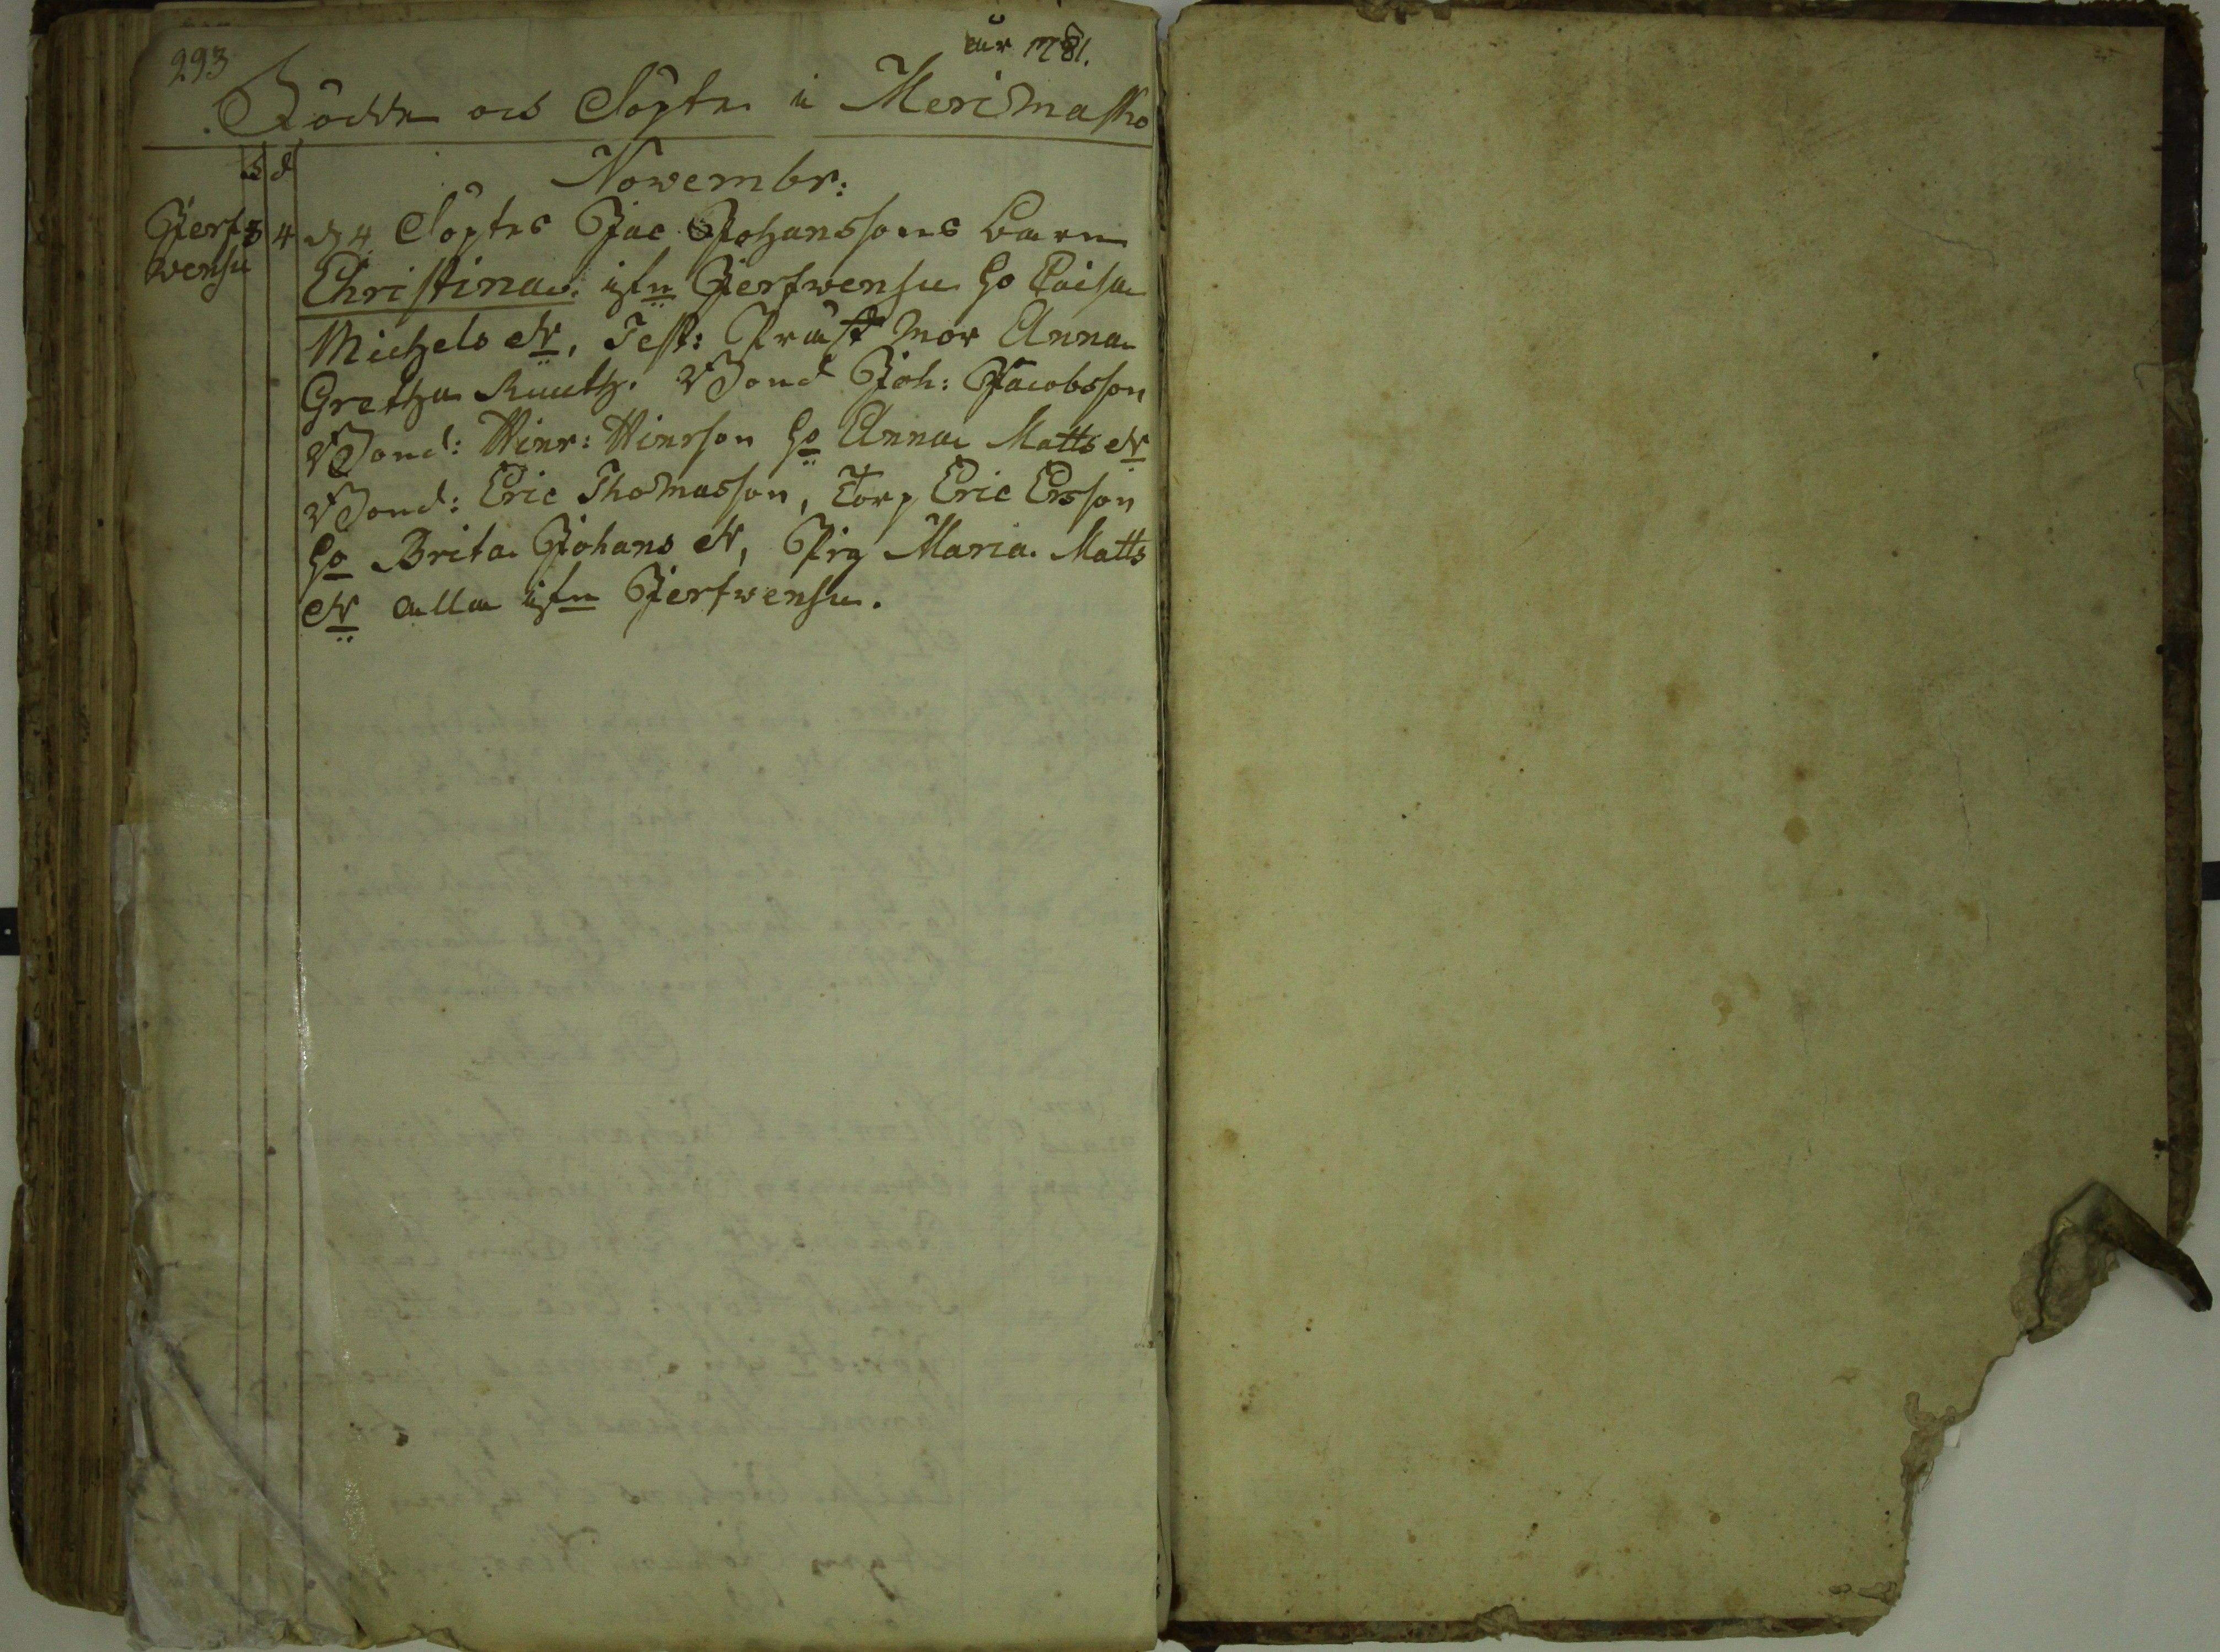 293
år 1781.
Födde och Döpte i Merimasko
f d
Novembr:
Jerf= 3 4 d 4 Döptes Jac Johanssons barn
wensu
Christina. ifrn Jerfwensu ho Caisa
Michels dr, Test: Prost mor Anna
Gretha Ruuth. Bond Joh: Jacobsson
Bond: Hinr: Hinrson ho Anna Matts dr
Bond: Eric Thomasson, Torp Eric Ersson
ho Brita Johans dr, Pig Maria Matts
dr alla ifrn Jerfwensu.